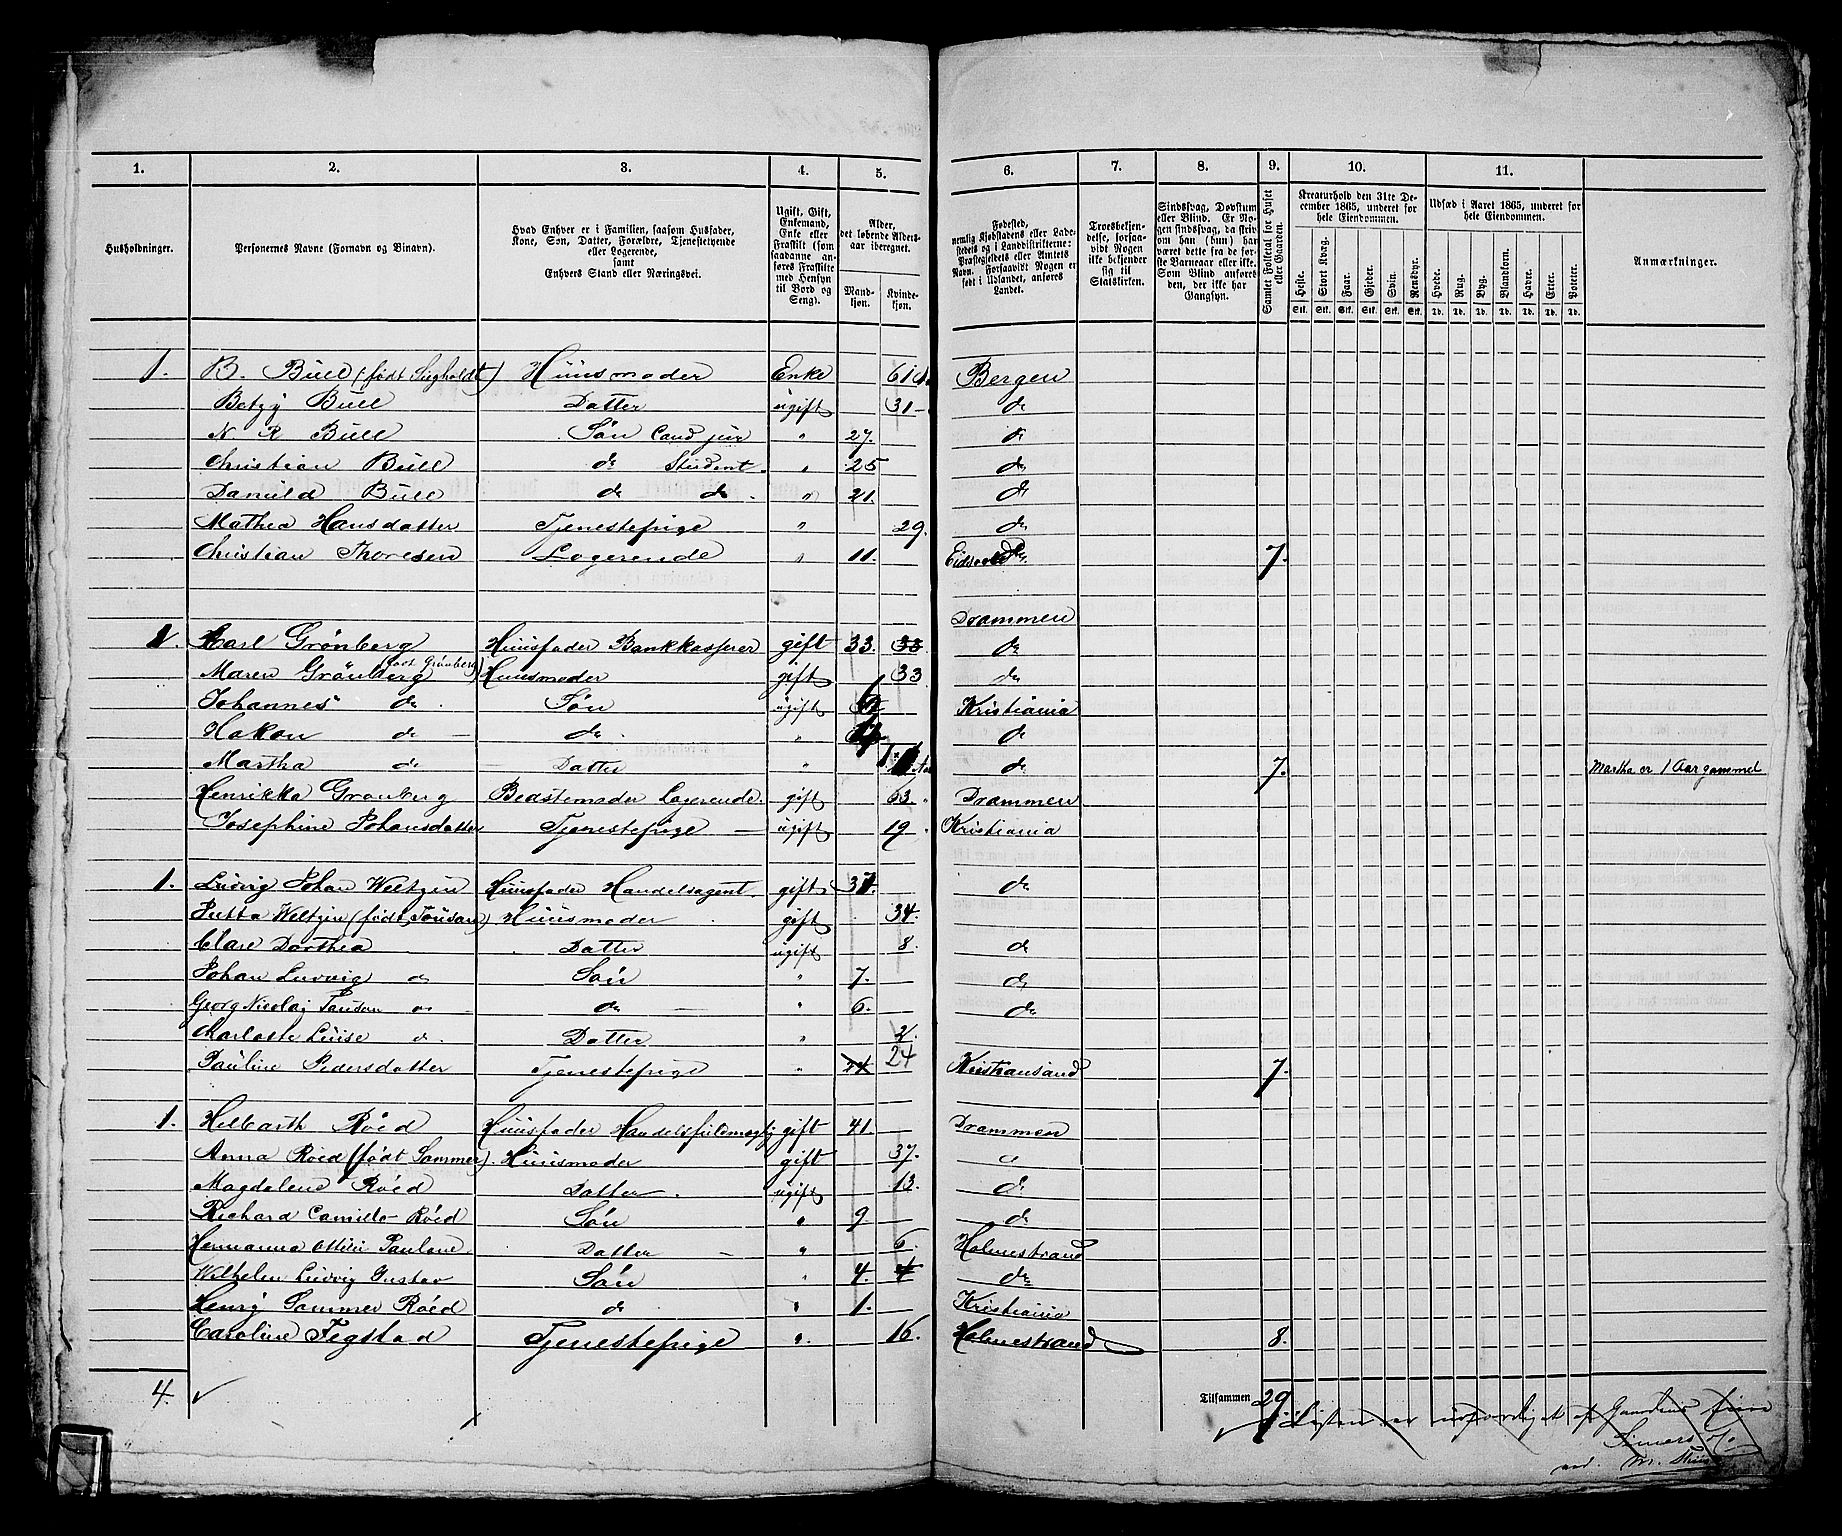 1. 2. 3. 4. 5. 6. 7. 8. 9. 10. 11.
Husholdninger.
Personernes Navne (Fornavn og Binavn).
Hvad Enhver er i Familien, saasom Husfader, Kone, Søn, Datter, Forældre, Tjenestetyende eller Logerende, samt Enhvers Stand eller Næringsvei.
Ugift, Gift, Enkemand, Enke eller Fraskilt (som saadanne anføres Fraskilte med Hensyn til Bord og Seng).
Alder, det løbende Alders-aar iberegnet.
Mand-kjøn. Kvinde-kjøn.
Fødested, nemlig Kjøbstadens eller Ladestedets og i Landdistrikterne: Præstegjeldets eller Amtets Navn. Forsaavidt Nogen er født i Udlandet, anføres Landet.
Troesbekjendelse, forsaavidt Nogen ikke bekjender sig til Statskirken.
Sindssvag, Døvstum eller Blind. Er Nogen sindssvag, da skriv om han (hun) har været dette fra de første Barneaar eller ikke. Som Blind anføres den, der ikke har Gangsyn.
Samlet Folketal for Huset eller Gaarden.
Kreaturhold den 31te December 1865, underet for hele Eiendommen.
Heste. Stort Kvæg. Faar. Gjeder. Svin. Rensdyr.
Stk. Stk. Stk. Stk. Stk. Stk.
Udsæd i Aaret 1865, underet for hele Eiendommen.
Hvede. Rug. Byg. Blandkorn. Havre. Erter. Poteter.
Td. Td. Td. Td. Td. Td. Td.
Anmærkninger.
1. B. Bull (født Siegholdt) Huusmoder Enke 61 Bergen
Betzy Bull Datter ugift 31 do
N R Bull Søn Cand jur " 27. do
Christian Bull do Student " 25 do
Danuld Bull do do " 21. do
Mathea Hansdatter Tjenestepige " 29. do
Christian Thoresen Logerende " 11. Eidsvold 7.
Drammen
1. Carl Grönberg Huusfader Bankkasserer gift 33. 33. do
Maren Grönberg (født Grönberg) Huusmoder gift 33 do
Johannes do Søn ugift 6 Kristiania
Hakon do do " do
Martha do Datter " 1 do 7. Martha er 1 Aar gammel
Henrikka Grönberg Bedstemoder Logerende. gift 63 Drammen
Josephine Johansdatter Tjenestepige ugift 19 Kristiania
1. Ludvig Johan Weltzin Huusfader Handelsagent. gift 37. do
Jutta Weltzin (født Tousan) Huusmoder gift 34.
Clare Dorthea Datter ugift 8. do
Johan Ludvig do Søn " 7. do
Georg Nicolaj Tousan do do " 6. do
Charlotte Louise do. Datter " 2.
Pauline Pedersdatter Tjenestepige " 24 24 Kristiansand 7.
1. Helbarth Röed Huusfader Handelsfuldmægtig gift 41. Drammen
Anna Röed (født Sommer). Huusmoder gift 37. do
Magdalene Röed Datter ugift 13. do
Richard Camillo Röed Søn " 9. do
Hermanna Ottilie Pauline Datter " 6. Holmestrand
Wilhelm Ludvig Gustav Søn " 4. 4 do
Henry Sommer Röed do " 1. Kristiania
Caroline Fegstad Tjenestepige " 16. Holmestrand 8.
4. Tilsammen 29
Listen er udfærdiget af Gaardens Eiere